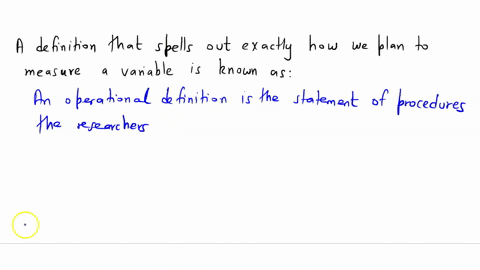 A definition that spells out exactly how we plan to
measure a variable is known as:
An operational definition is the statement of procedures
the researchers